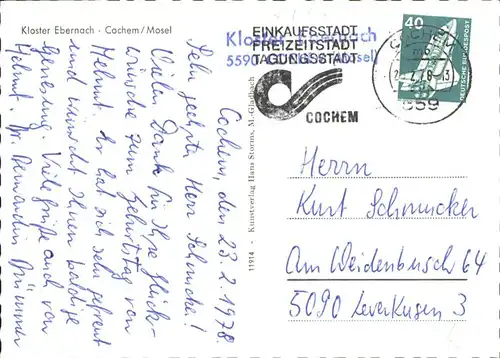 Kloster Ebernach - Cochem/Mosel
Kloster Ebernach
5590 Cochem (Mosel)
EINKAUFSSTADT
FREIZEITSTADT
TAGUNGSSTADT
COCHEM
40
DEUTSCHE BUNDESPOST
COCHEM
559
Cochem, den 23.2.1978
Sehr geehrter Herr Schmucker!
Vielen Dank für Ihre Glück-
wünsche zum Geburtstag von
Helmut. Er hat sich sehr gefreut
und wünscht Ihnen baldige
Genesung. Viele Grüße auch von
Helmut. Br.
11914 - Kunstverlag Hans Storms, M.-Gladbach
Herrn
Kurt Schmucker
Am Weidenbusch 64
5090 Leverkusen 3